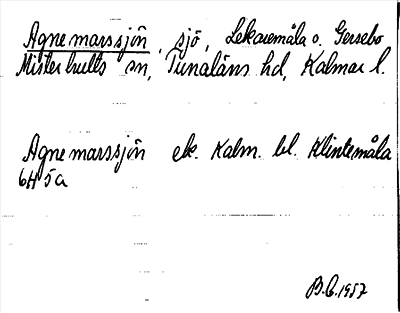 Agnemarssjön, sjö, Lekaremåla o. Gersebo
Misterhults sn, Tunaläns hd, Kalmar l.
Agnemarssjön ek. Kalm. bl. Klintemåla
6H 5a
B.G. 1957